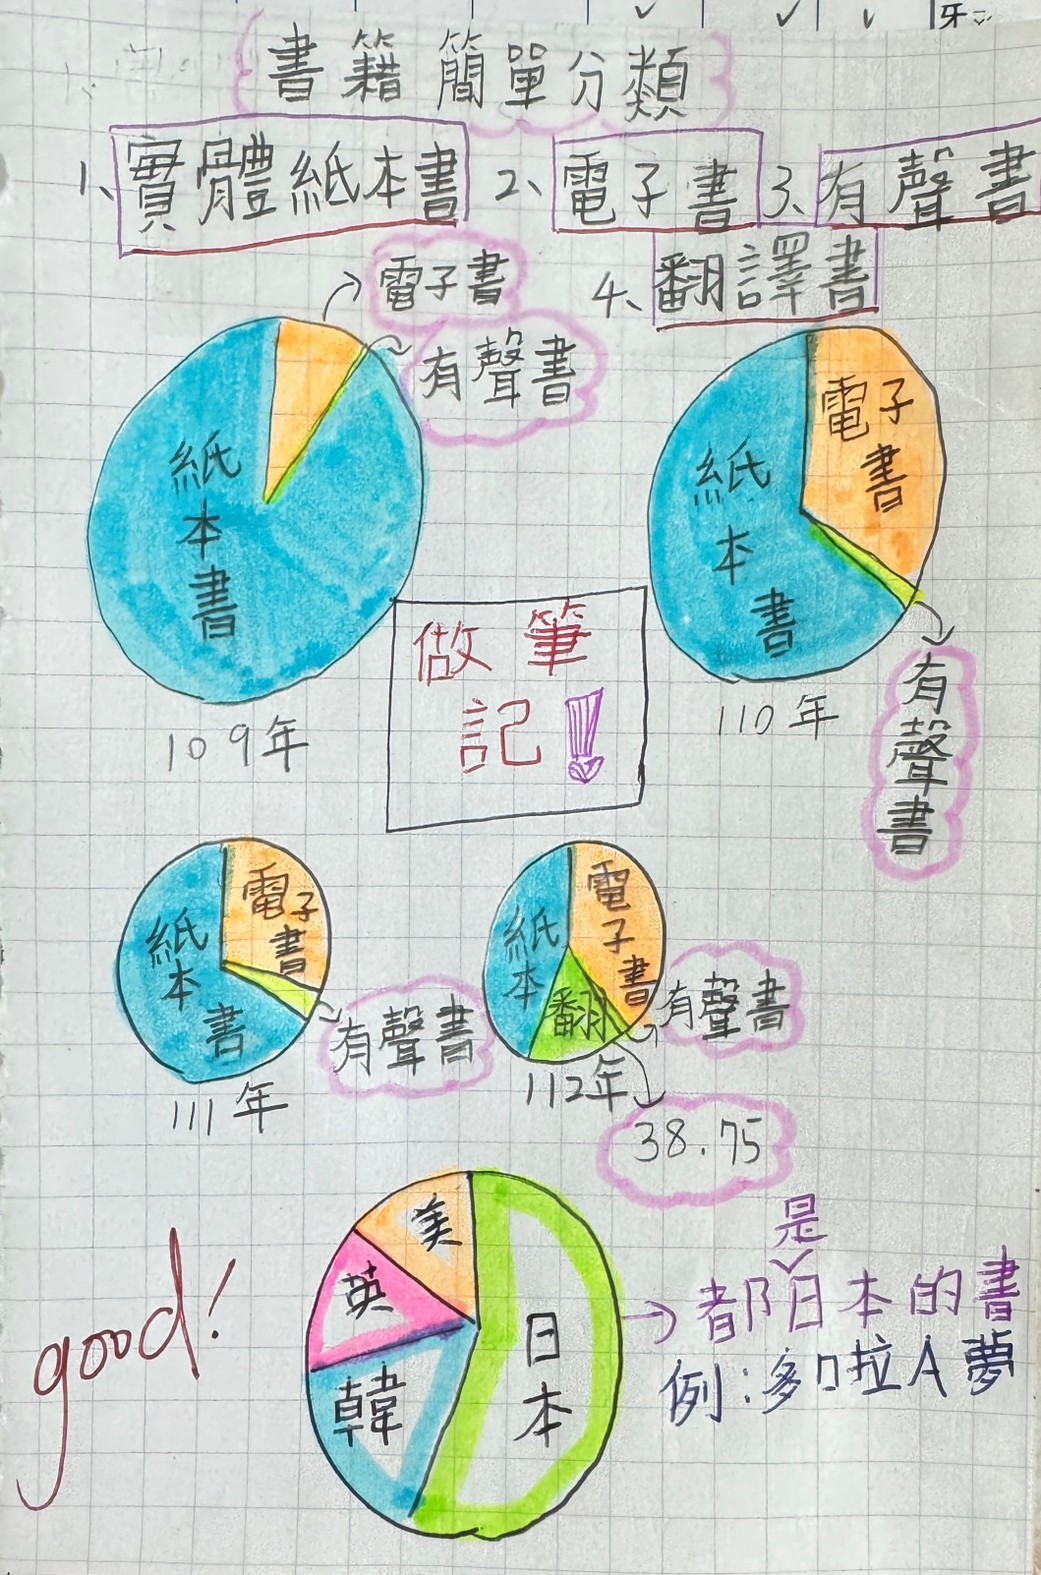 牙
書籍簡單分類
1、實體紙本書 2、電子書 3、有聲書
4、翻譯書
電子書
有聲書
紙本書
109年
電子書
紙本書
有聲書
110年
做筆記!
電子書
紙本書
有聲書
111年
電子書
紙本
翻
有聲書
112年
38.75
美
英
韓
日本
是
都日本的書
例:多口拉A夢
good!